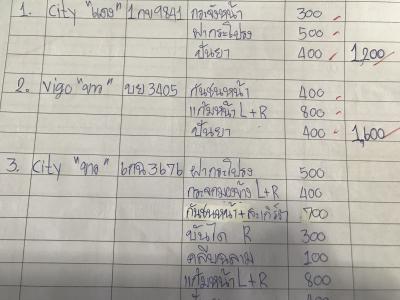 1. City "แดง" 1กข9841 กระจังหน้า 300
ฝากระโปรง 500
ปั่นยา 400 1,200
2. Vigo "ขาว" บย 3405 กันชนหน้า 400
แก้มหน้า L+R 800
ปั่นยา 400 1,600
3. City "ขาว" 3676 ฝากระโปรง 500
กระจกมองข้าง L+R 400
กันชนหน้า+สเกิร์ต 700
บันได R 300
100
แก้มหน้า L+R 800